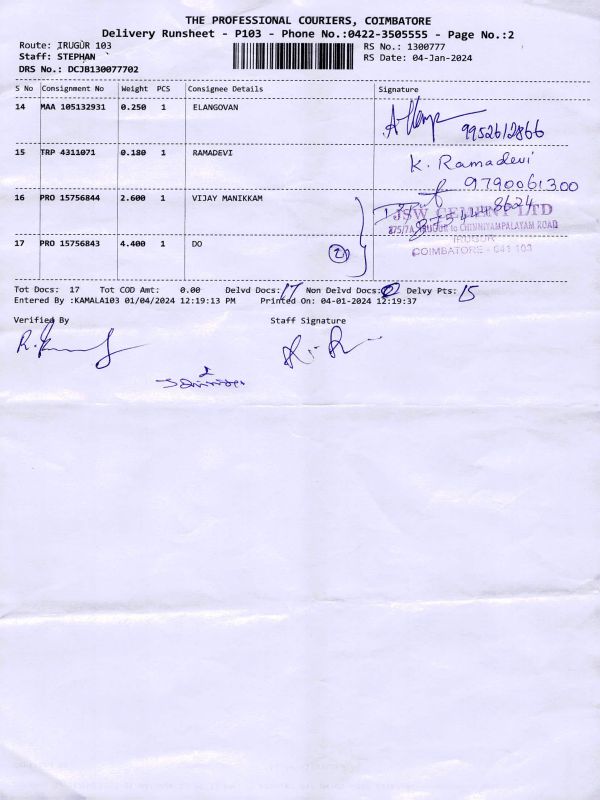 THE PROFESSIONAL COURIERS, COIMBATORE
Delivery Runsheet - P103 - Phone No.:0422-3505555 - Page No.:2
Route: IRUGUR 103
RS No.: 1300777
Staff: STEPHAN
RS Date: 04-Jan-2024
DRS No.: DCJB130077702
S No Consignment No Weight PCS Consignee Details Signature
14 MAA 105132931 0.250 1 ELANGOVAN
9952612866
15 TRP 4311071 0.180 1 RAMADEVI
K. Ramadevi
9790061300
16 PRO 15756844 2.600 1 VIJAY MANIKKAM
JSW CEMENT LTD
IRUGUR to CHINNIYAMPALAYAM ROAD
IRUGUR
COIMBATORE - 641 103
17 PRO 15756843 4.400 1 DO
Tot Docs: 17 Tot COD Amt: 0.00 Delvd Docs: 17 Non Delvd Docs: 0 Delvy Pts: 15
Entered By :KAMALA103 01/04/2024 12:19:13 PM Printed On: 04-01-2024 12:19:37
Verified By Staff Signature